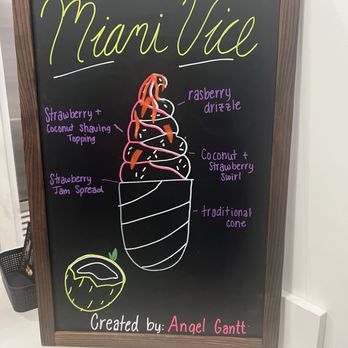 Miani Vice
rasberry
drizzle
Strawberry +
Coconut Shaving
Topping
Coconut +
Strawberry
Swirl
Strawberry
Jam Spread
traditional
cone
Created by: Angel Gantt